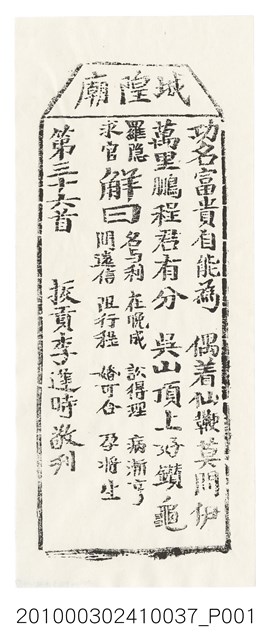 城隍廟
功名富貴自能為　偶着仙鞭莫問伊
萬里鵬程君有分　吳山頂上好鑽龜
羅隱
求官
解曰
名与利　在晚成　訟得理　病漸亨
問遠信　阻行程　婚可合　孕將生
第三十六首　拔貢李逢時敬刊
201000302410037_P001